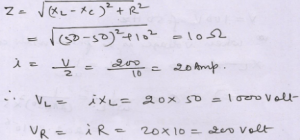 Z = √(X_L - X_C)² + R²
= √(50-50)² + 10² = 10 Ω
i = V/Z = 200/10 = 20 Amp.
∴ V_L = i X_L = 20 × 50 = 1000 Volt
V_R = i R = 20 × 10 = 200 Volt